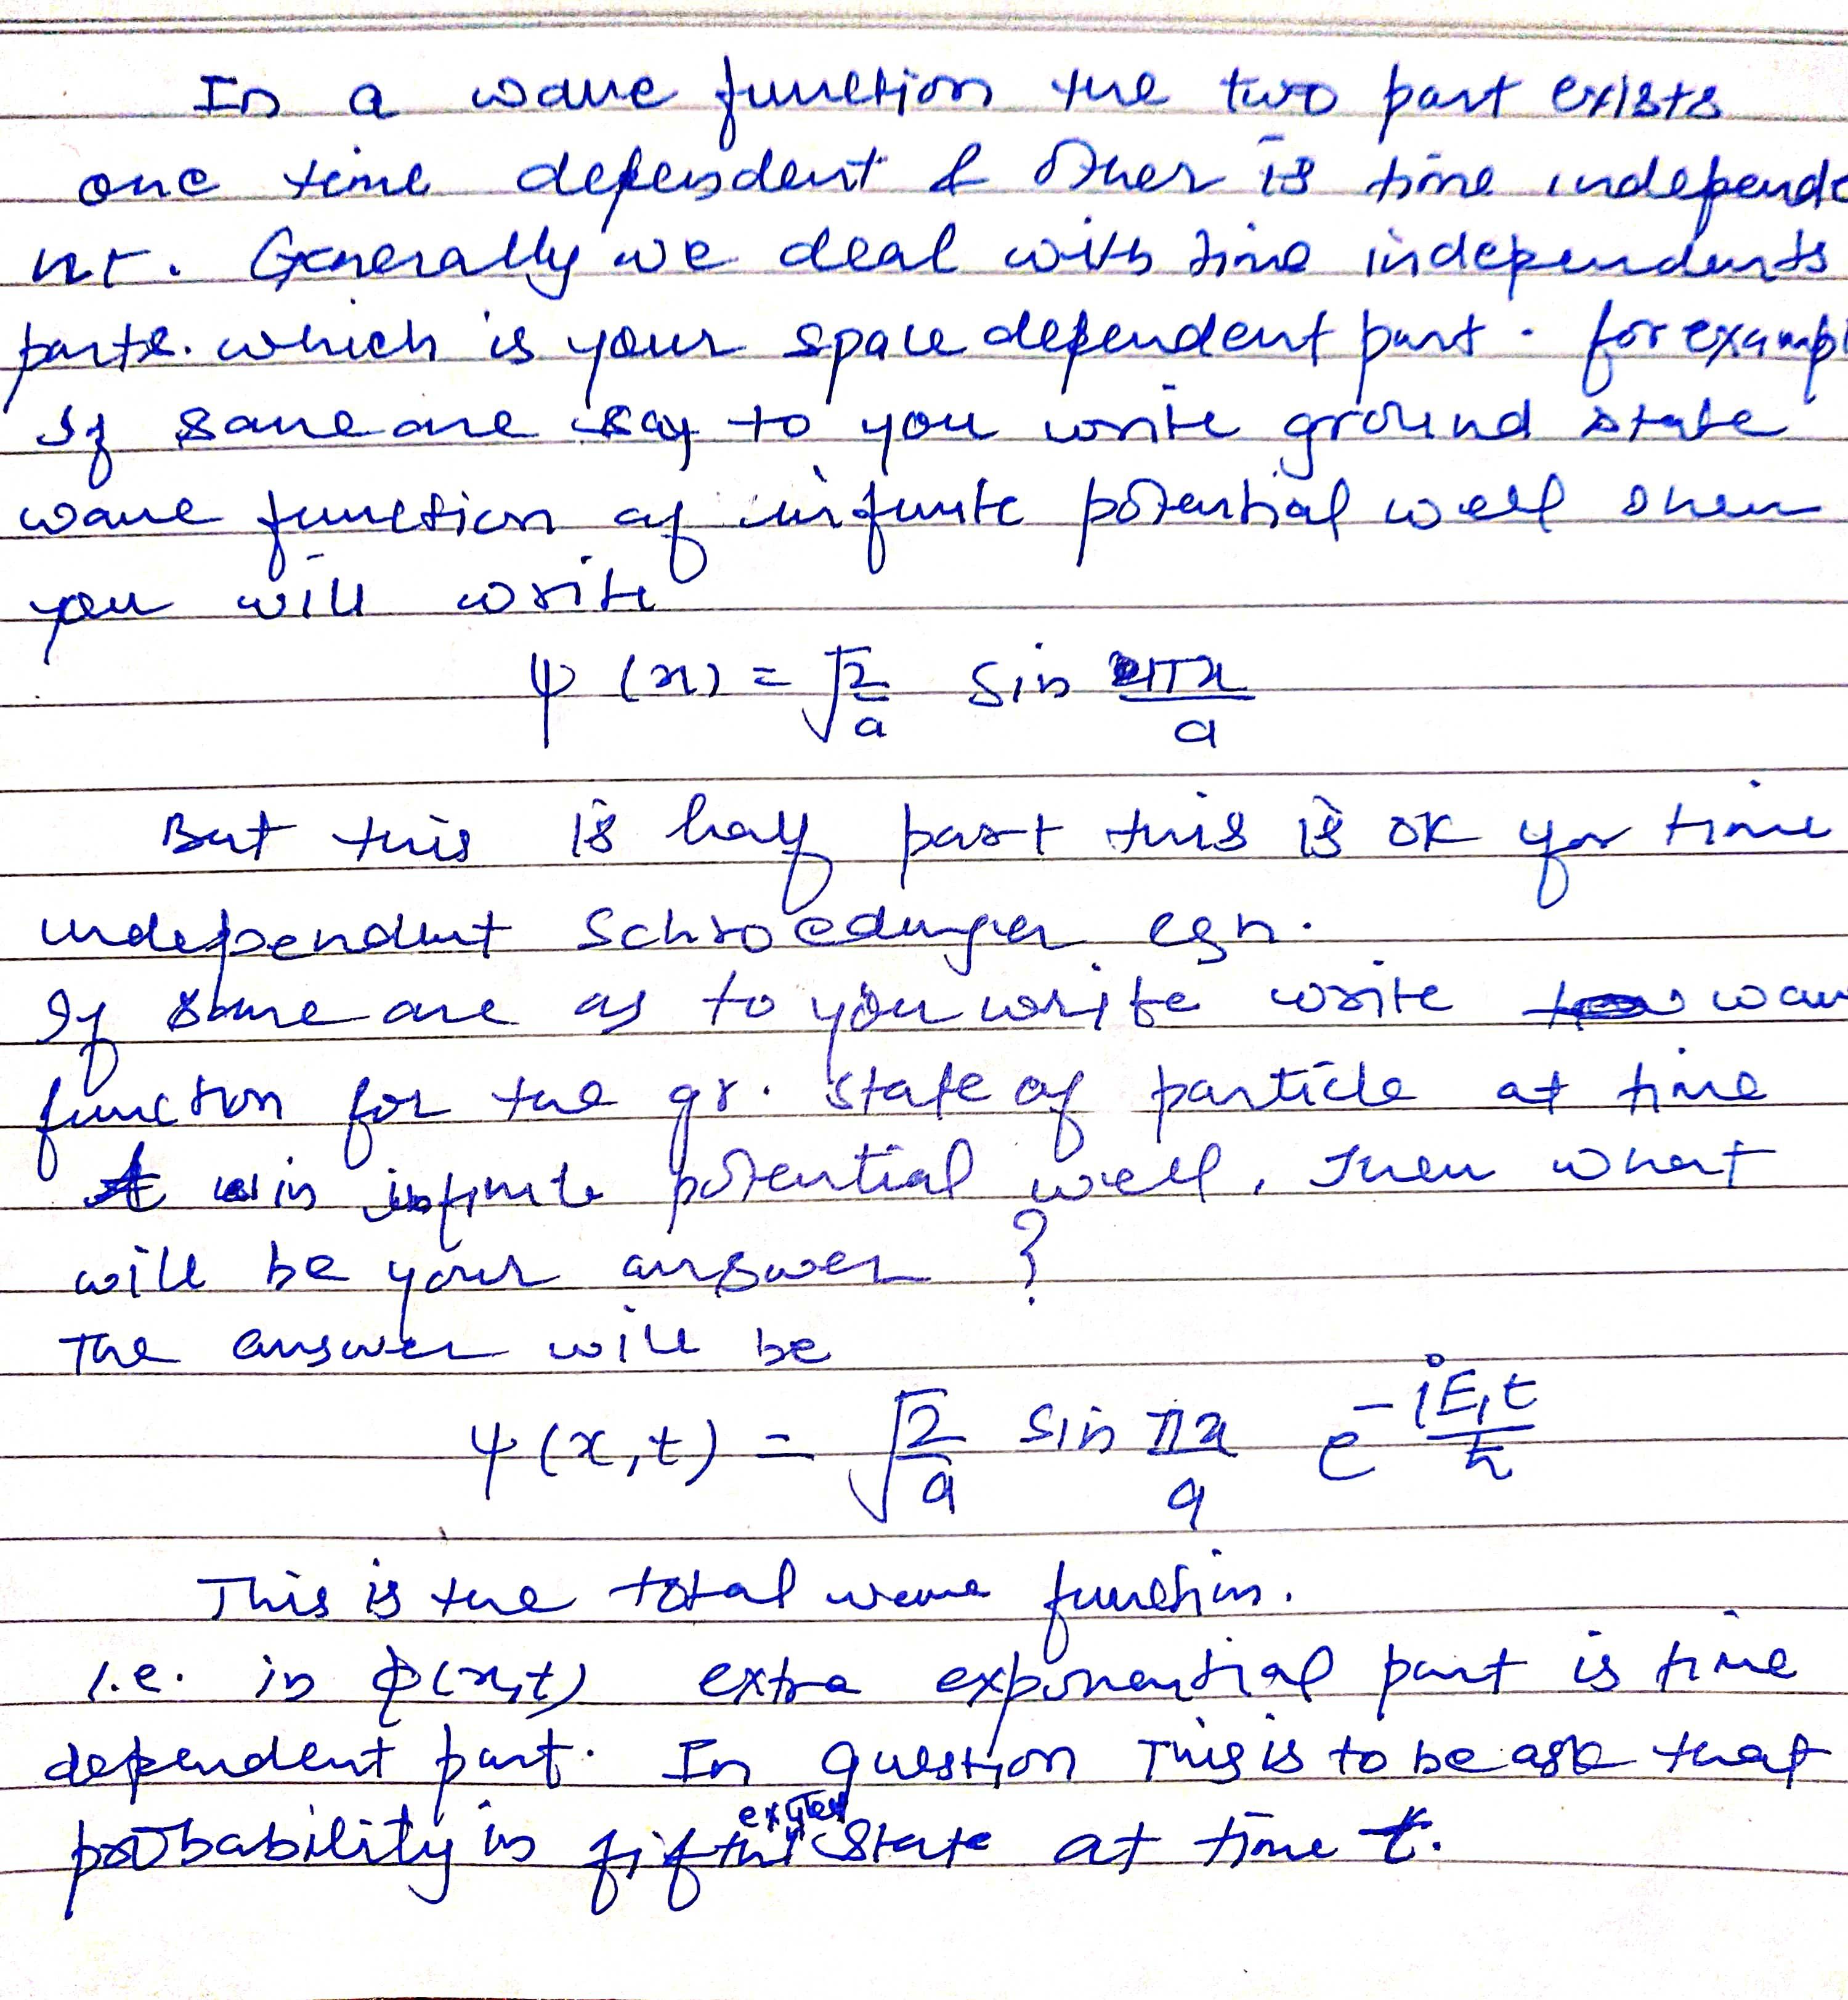 In a wave function the two part exists
one time dependent & other is time independe
nt. Generally we deal with time independents
parts. which is your space dependent part. for exampl
If someone say to you write ground state
wave function of infinite potential well then
you will write
ψ (x) = √2/a sin πx/a
But this is half part this is OK for time
independent Schroedinger eqn.
If some one as to you write write wav
function for the gr. state of particle at time
t in infinite potential well, then what
will be your answer ?
The answer will be
ψ(x,t) = √2/a sin πx/a e^-iE₁t/ħ
This is the total wave function.
i.e. in ϕ(x,t) extra exponential part is time
dependent part. In question This is to be ask that
probability in fifth excited state at time t.